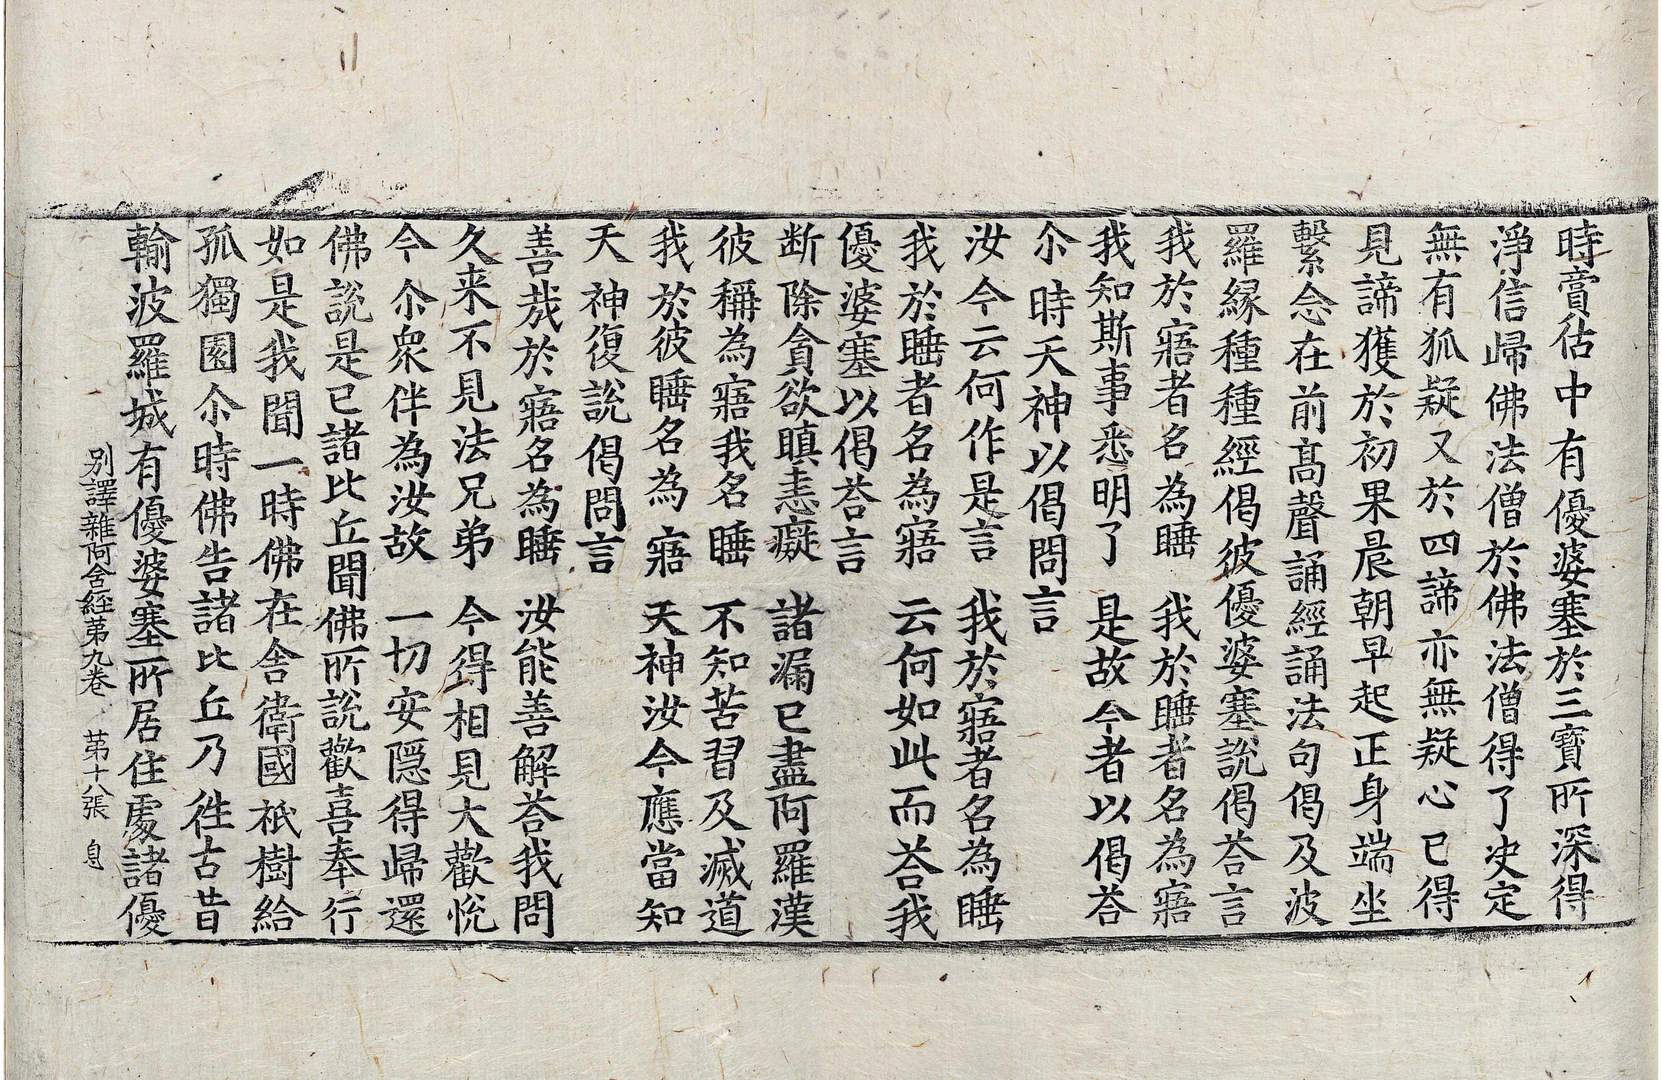 時賣估中有優婆塞於三寶所深得
淨信歸佛法僧於佛法僧得了决定
無有狐疑又於四諦亦無疑心已得
見諦獲於初果晨朝早起正身端坐
繫念在前高聲誦經誦法句偈及波
羅緣種種經偈彼優婆塞說偈荅言
我於寤者名為睡　我於睡者名為寤
我知斯事悉明了　是故今者以偈荅
尒時天神以偈問言
汝今云何作是言　我於寤者名為睡
我於睡者名為寤　云何如此而荅我
優婆塞以偈荅言
断除貪欲瞋恚癡　諸漏已盡阿羅漢
彼稱為寤我名睡　不知苦習及滅道
我於彼睡名為寤　天神汝今應當知
天神復說偈問言
善㦲於寤名為睡　汝能善解荅我問
久来不見法兄弟　今得相見大歡悅
今尒衆伴為汝故　一切安隱得歸還
佛說是已諸比丘聞佛所說歡喜奉行
如是我聞一時佛在舍衛國祇樹給
孤獨園尒時佛告諸比丘乃徃古昔
輸波羅城有優婆塞所居住處諸優
別譯雜阿含經第九卷　第十八張　息